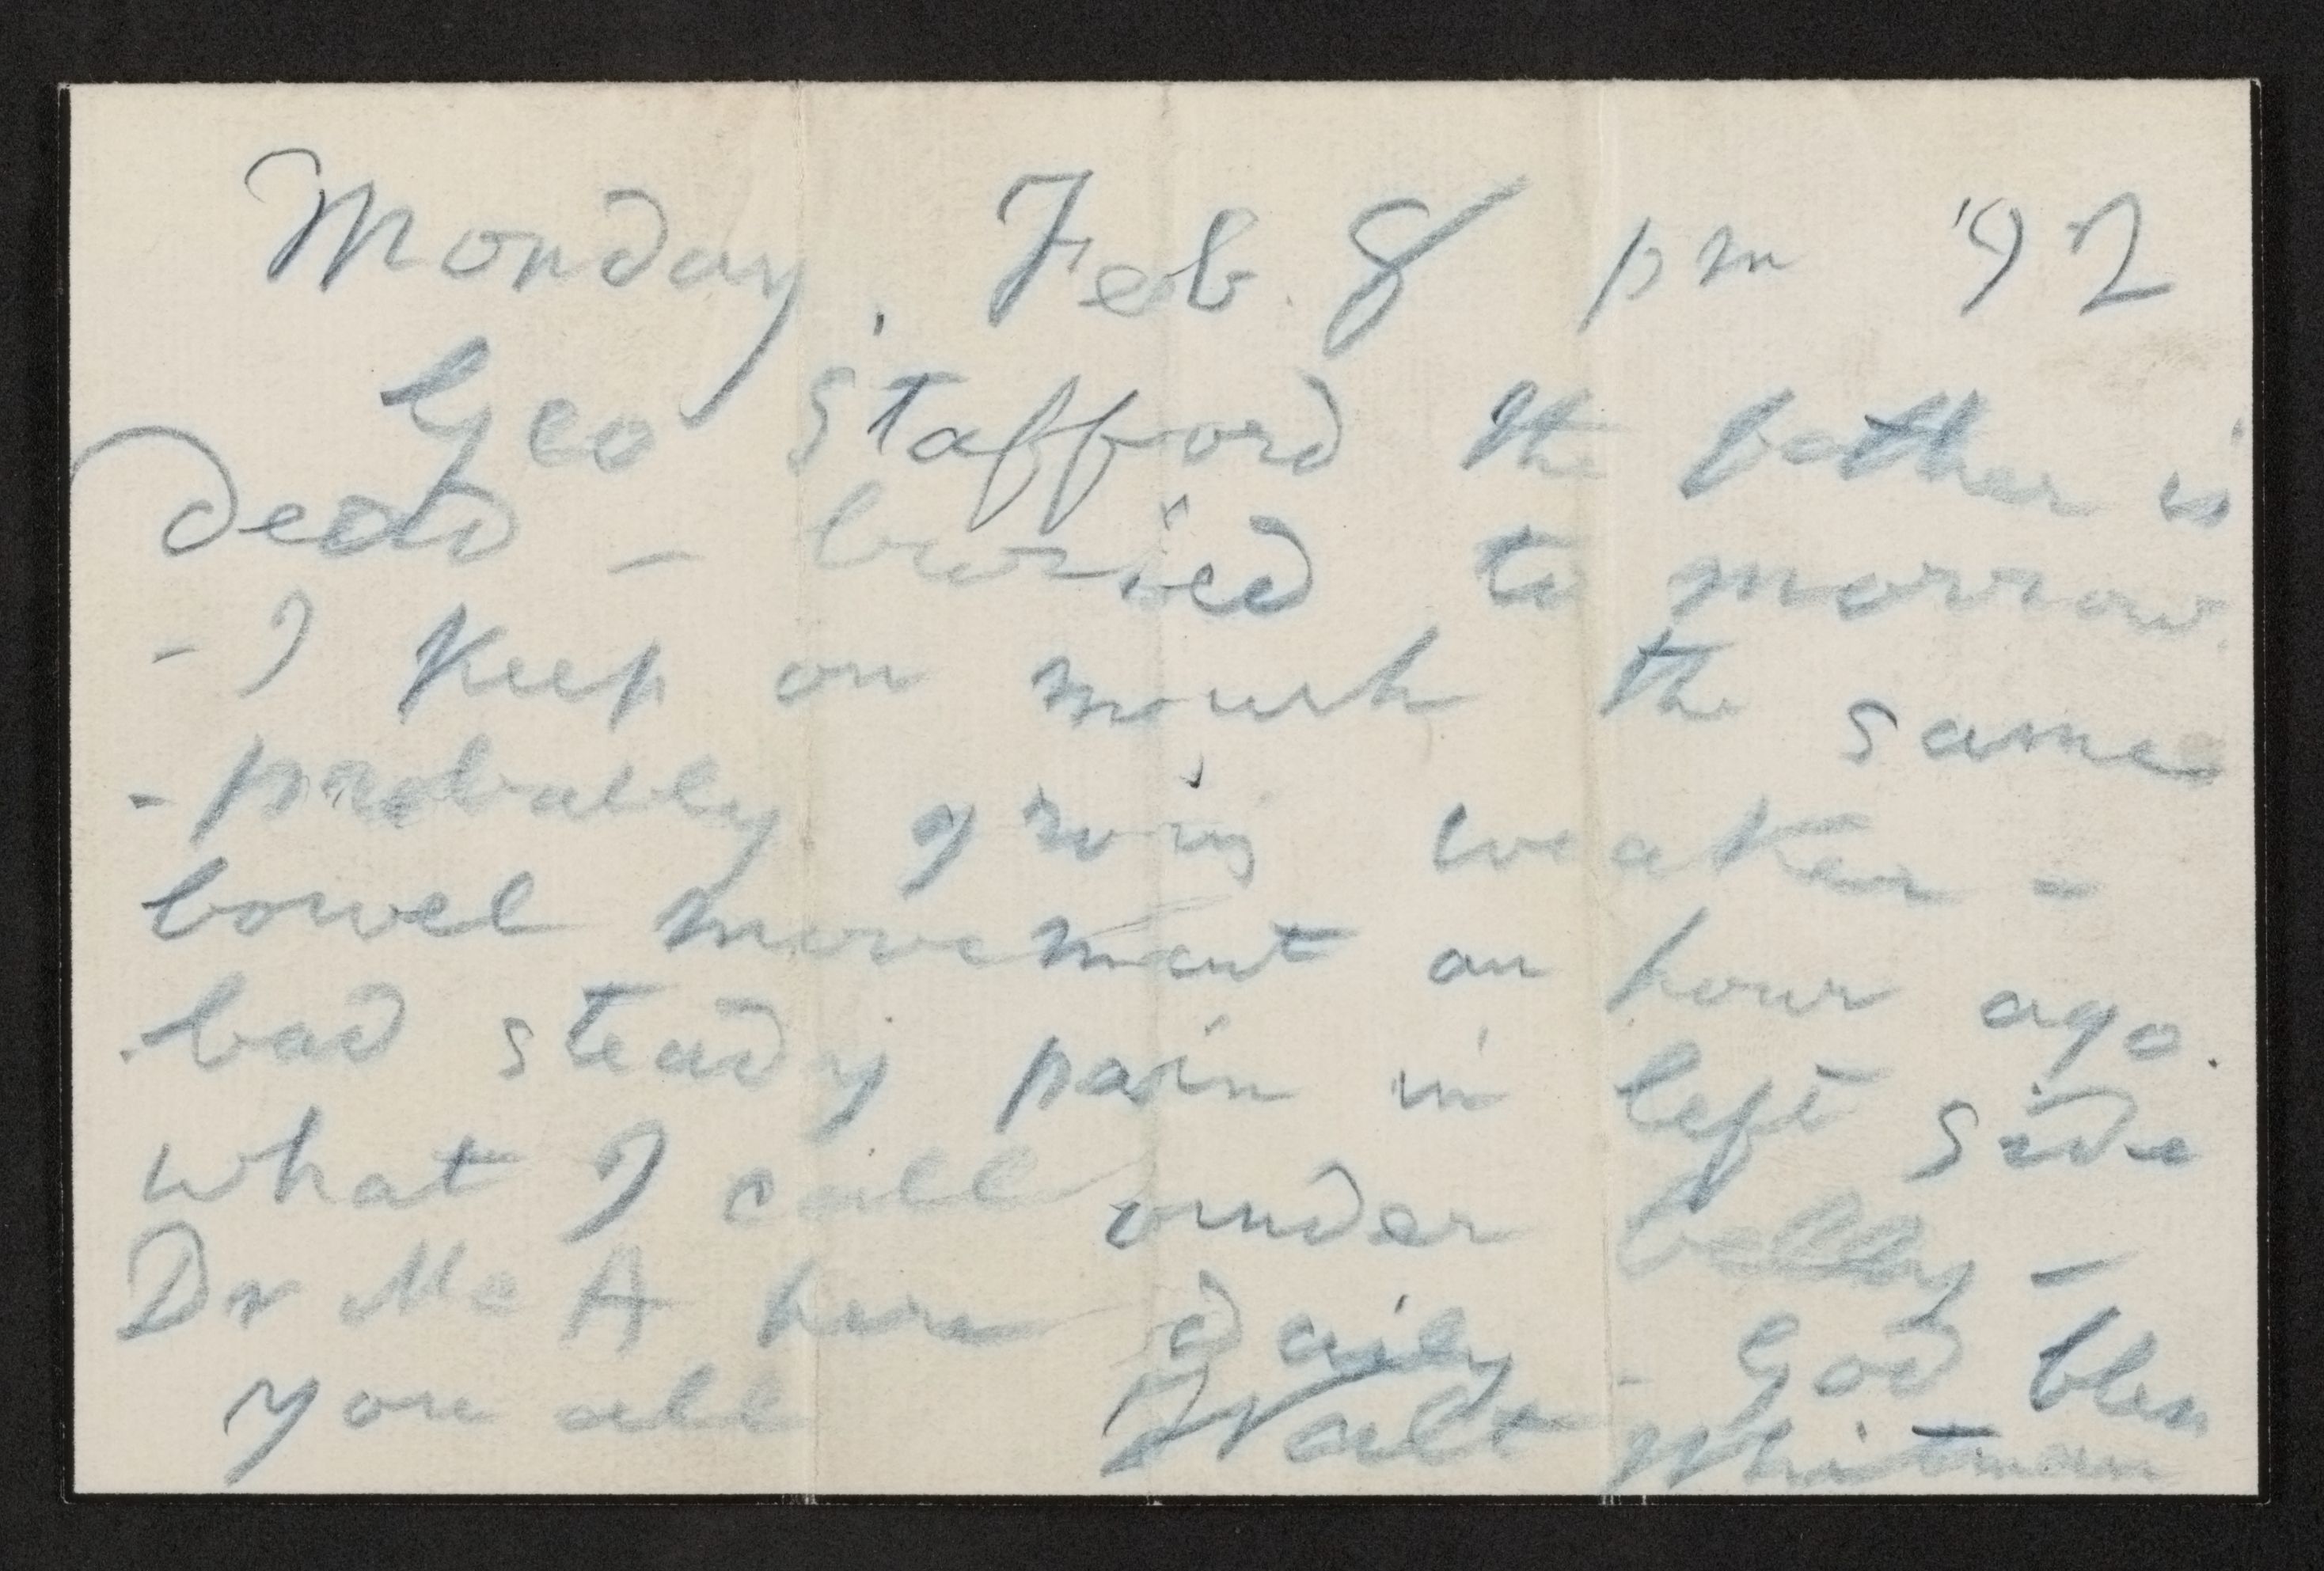 Monday, Feb. 8 pm '92
Geo Stafford the father is
dead – buried to morrow.
– I keep on much the same
– probably growing weaker –
bowel movement an hour ago
bad steady pain in left side
what I call under belly –
Dr Mc A here daily – God bless
you all Walt Whitman